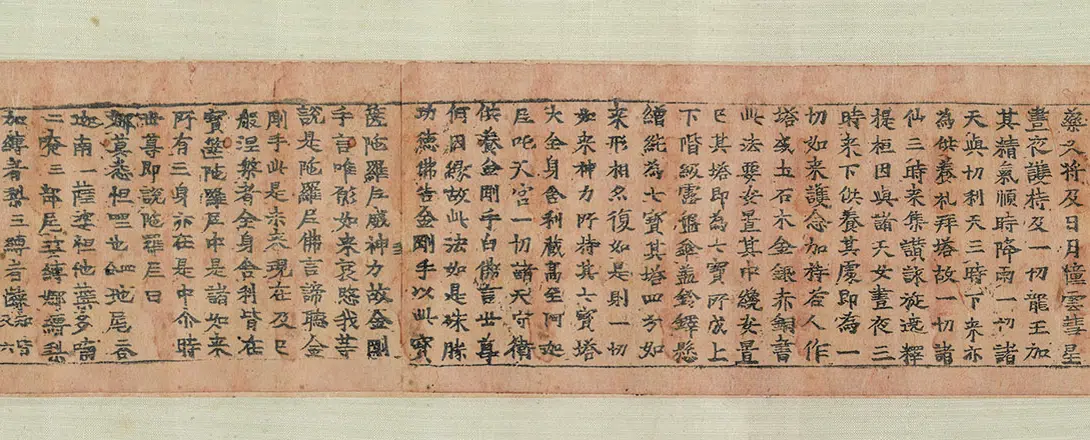 藥叉將及日月幢雲彗星
晝夜護持及一切龍王加
其精氣順時降雨一切諸
天與切利天三時下來亦
為供養礼拜塔故一切諸
仙三時來集讚詠旋遶釋
提桓因與諸天女晝夜三
時來下供養其處即為一
切如來護念加持若人作
塔或土石木金銀赤銅書
此法要安置其中纔安置
已其塔即為七寶所成上
下階級露盤傘蓋鈴鐸懸
繒純為七寶其塔四方如
來形相亦復如是則一切
如來神力所持其七寶塔
大全身舍利藏高至阿迦
尼吒天宮一切諸天守衛
供養金剛手白佛言世尊
何因緣故此法如是殊勝
功德佛告金剛手以此寶
篋陀羅尼威神力故金剛
手言唯願如來哀愍我等
說是陀羅尼佛言諦聽金
剛手此是未來現在及已
般涅槃者全身舍利皆在
寶篋陀羅尼中是諸如來
所有三身亦在是中尒時
世尊即說陀羅尼曰
娜莫悉怛哩也地尾
迦南一薩婆袒他蘗多喃
二唵三部尾婆嚩娜嚩梨
嚩者梨五嚩者 六